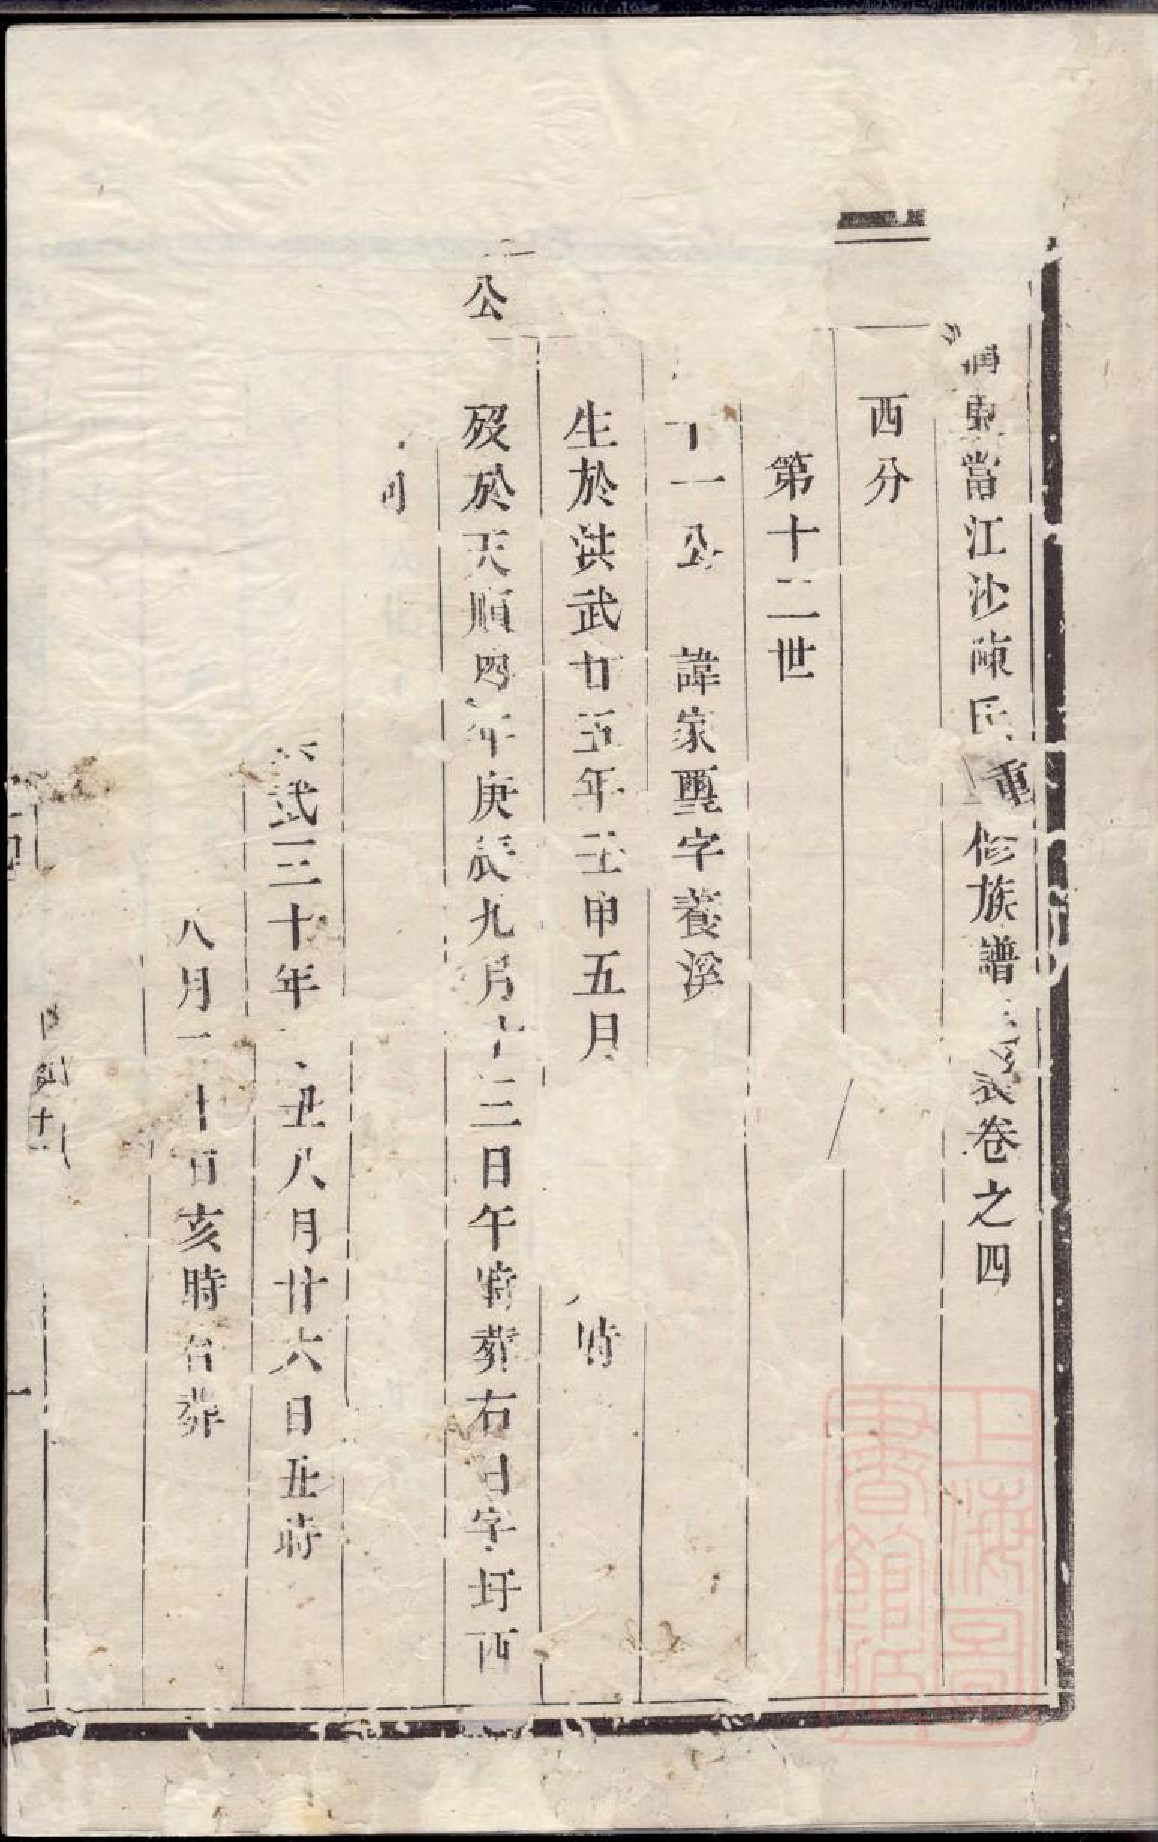 東當江沙陳氏重修族譜世表卷之四
西分
第十二世
十一公 諱家璽字養溪
生於洪武廿五年壬申五月 時
公 歿於天順四年庚辰九月十三日午時葬右日字圩西
武三十年 丑八月廿六日丑時
八月二十日亥時合葬
上海圖書館藏